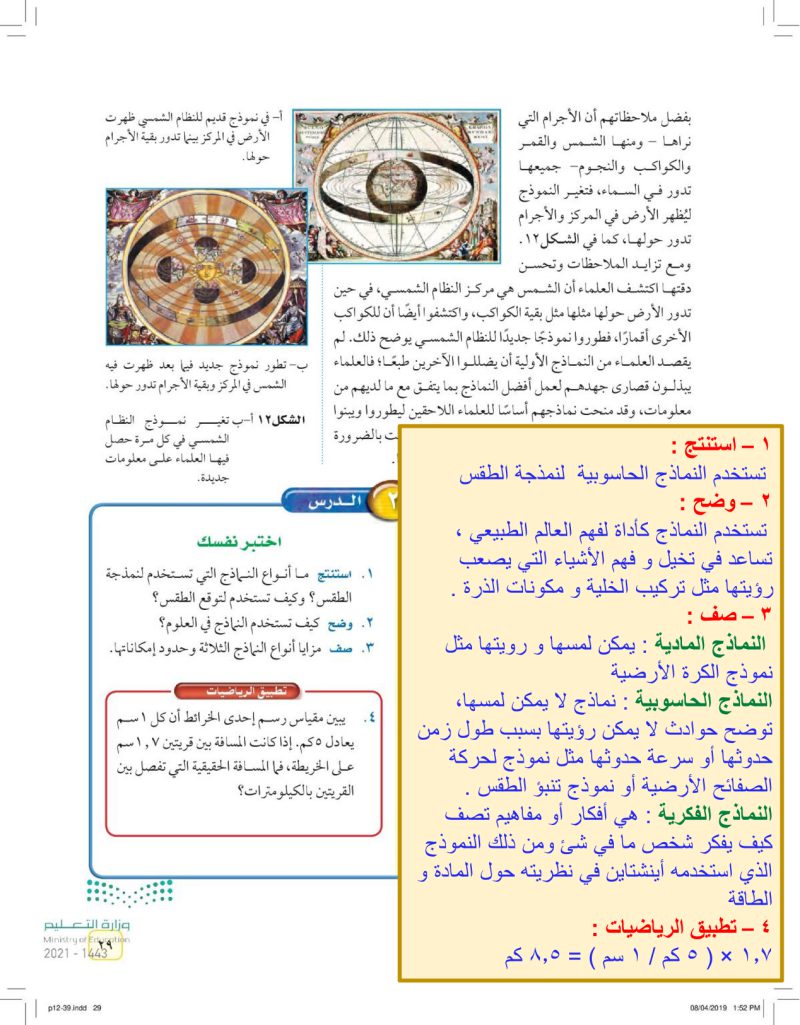 بفضل ملاحظاتهم أن الأجرام التي
نراها – ومنها الشمس والقمر
والكواكب والنجوم– جميعها
تدور في السماء، فتغير النموذج
ليُظهر الأرض في المركز والأجرام
تدور حولها، كما في الشكل١٢.
ومع تزايد الملاحظات وتحسن
دقتها اكتشف العلماء أن الشمس هي مركز النظام الشمسي، في حين
تدور الأرض حولها مثلها مثل بقية الكواكب، واكتشفوا أيضًا أن للكواكب
الأخرى أقمارًا، فطوروا نموذجًا جديدًا للنظام الشمسي يوضح ذلك. لم
يقصد العلماء من النماذج الأولية أن يضللوا الآخرين طبعًا؛ فالعلماء
يبذلون قصارى جهدهم لعمل أفضل النماذج بما يتفق مع ما لديهم من
معلومات، وقد منحت نماذجهم أساسًا للعلماء اللاحقين ليطوروا ويبنوا
بالضرورة
أ– في نموذج قديم للنظام الشمسي ظهرت
الأرض في المركز بينما تدور بقية الأجرام
حولها.
ب– تطور نموذج جديد فيما بعد ظهرت فيه
الشمس في المركز وبقية الأجرام تدور حولها.
الشكل١٢ أ–ب تغير نموذج النظام
الشمسي في كل مرة حصل
فيها العلماء على معلومات
جديدة.
٢ الدرس
اختبر نفسك
١. استنتج ما أنواع النماذج التي تستخدم لنمذجة
الطقس؟ وكيف تستخدم لتوقع الطقس؟
٢. وضح كيف تستخدم النماذج في العلوم؟
٣. صف مزايا أنواع النماذج الثلاثة وحدود إمكاناتها.
تطبيق الرياضيات
٤. يبين مقياس رسم إحدى الخرائط أن كل ١سم
يعادل ٥كم. إذا كانت المسافة بين قريتين ١,٧سم
على الخريطة، فما المسافة الحقيقية التي تفصل بين
القريتين بالكيلومترات؟
١ – استنتج :
تستخدم النماذج الحاسوبية لنمذجة الطقس
٢ – وضح :
تستخدم النماذج كأداة لفهم العالم الطبيعي ،
تساعد في تخيل و فهم الأشياء التي يصعب
رؤيتها مثل تركيب الخلية و مكونات الذرة .
٣ – صف :
النماذج المادية : يمكن لمسها و رويتها مثل
نموذج الكرة الأرضية
النماذج الحاسوبية : نماذج لا يمكن لمسها،
توضح حوادث لا يمكن رؤيتها بسبب طول زمن
حدوثها أو سرعة حدوثها مثل نموذج لحركة
الصفائح الأرضية أو نموذج تنبؤ الطقس .
النماذج الفكرية : هي أفكار أو مفاهيم تصف
كيف يفكر شخص ما في شئ ومن ذلك النموذج
الذي استخدمه أينشتاين في نظريته حول المادة و
الطاقة
٤ – تطبيق الرياضيات :
١,٧ × ( ٥ كم / ١ سم ) = ٨,٥ كم
وزارة التعليم
Ministry of Education
٢٩
2021 - 1443
p12-39.indd 29
08/04/2019 1:52 PM